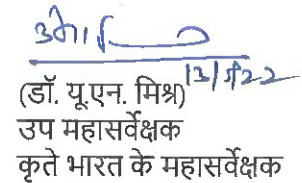 13/5/22
(डॉ. यू.एन. मिश्र)
उप महासर्वेक्षक
कृते भारत के महासर्वेक्षक